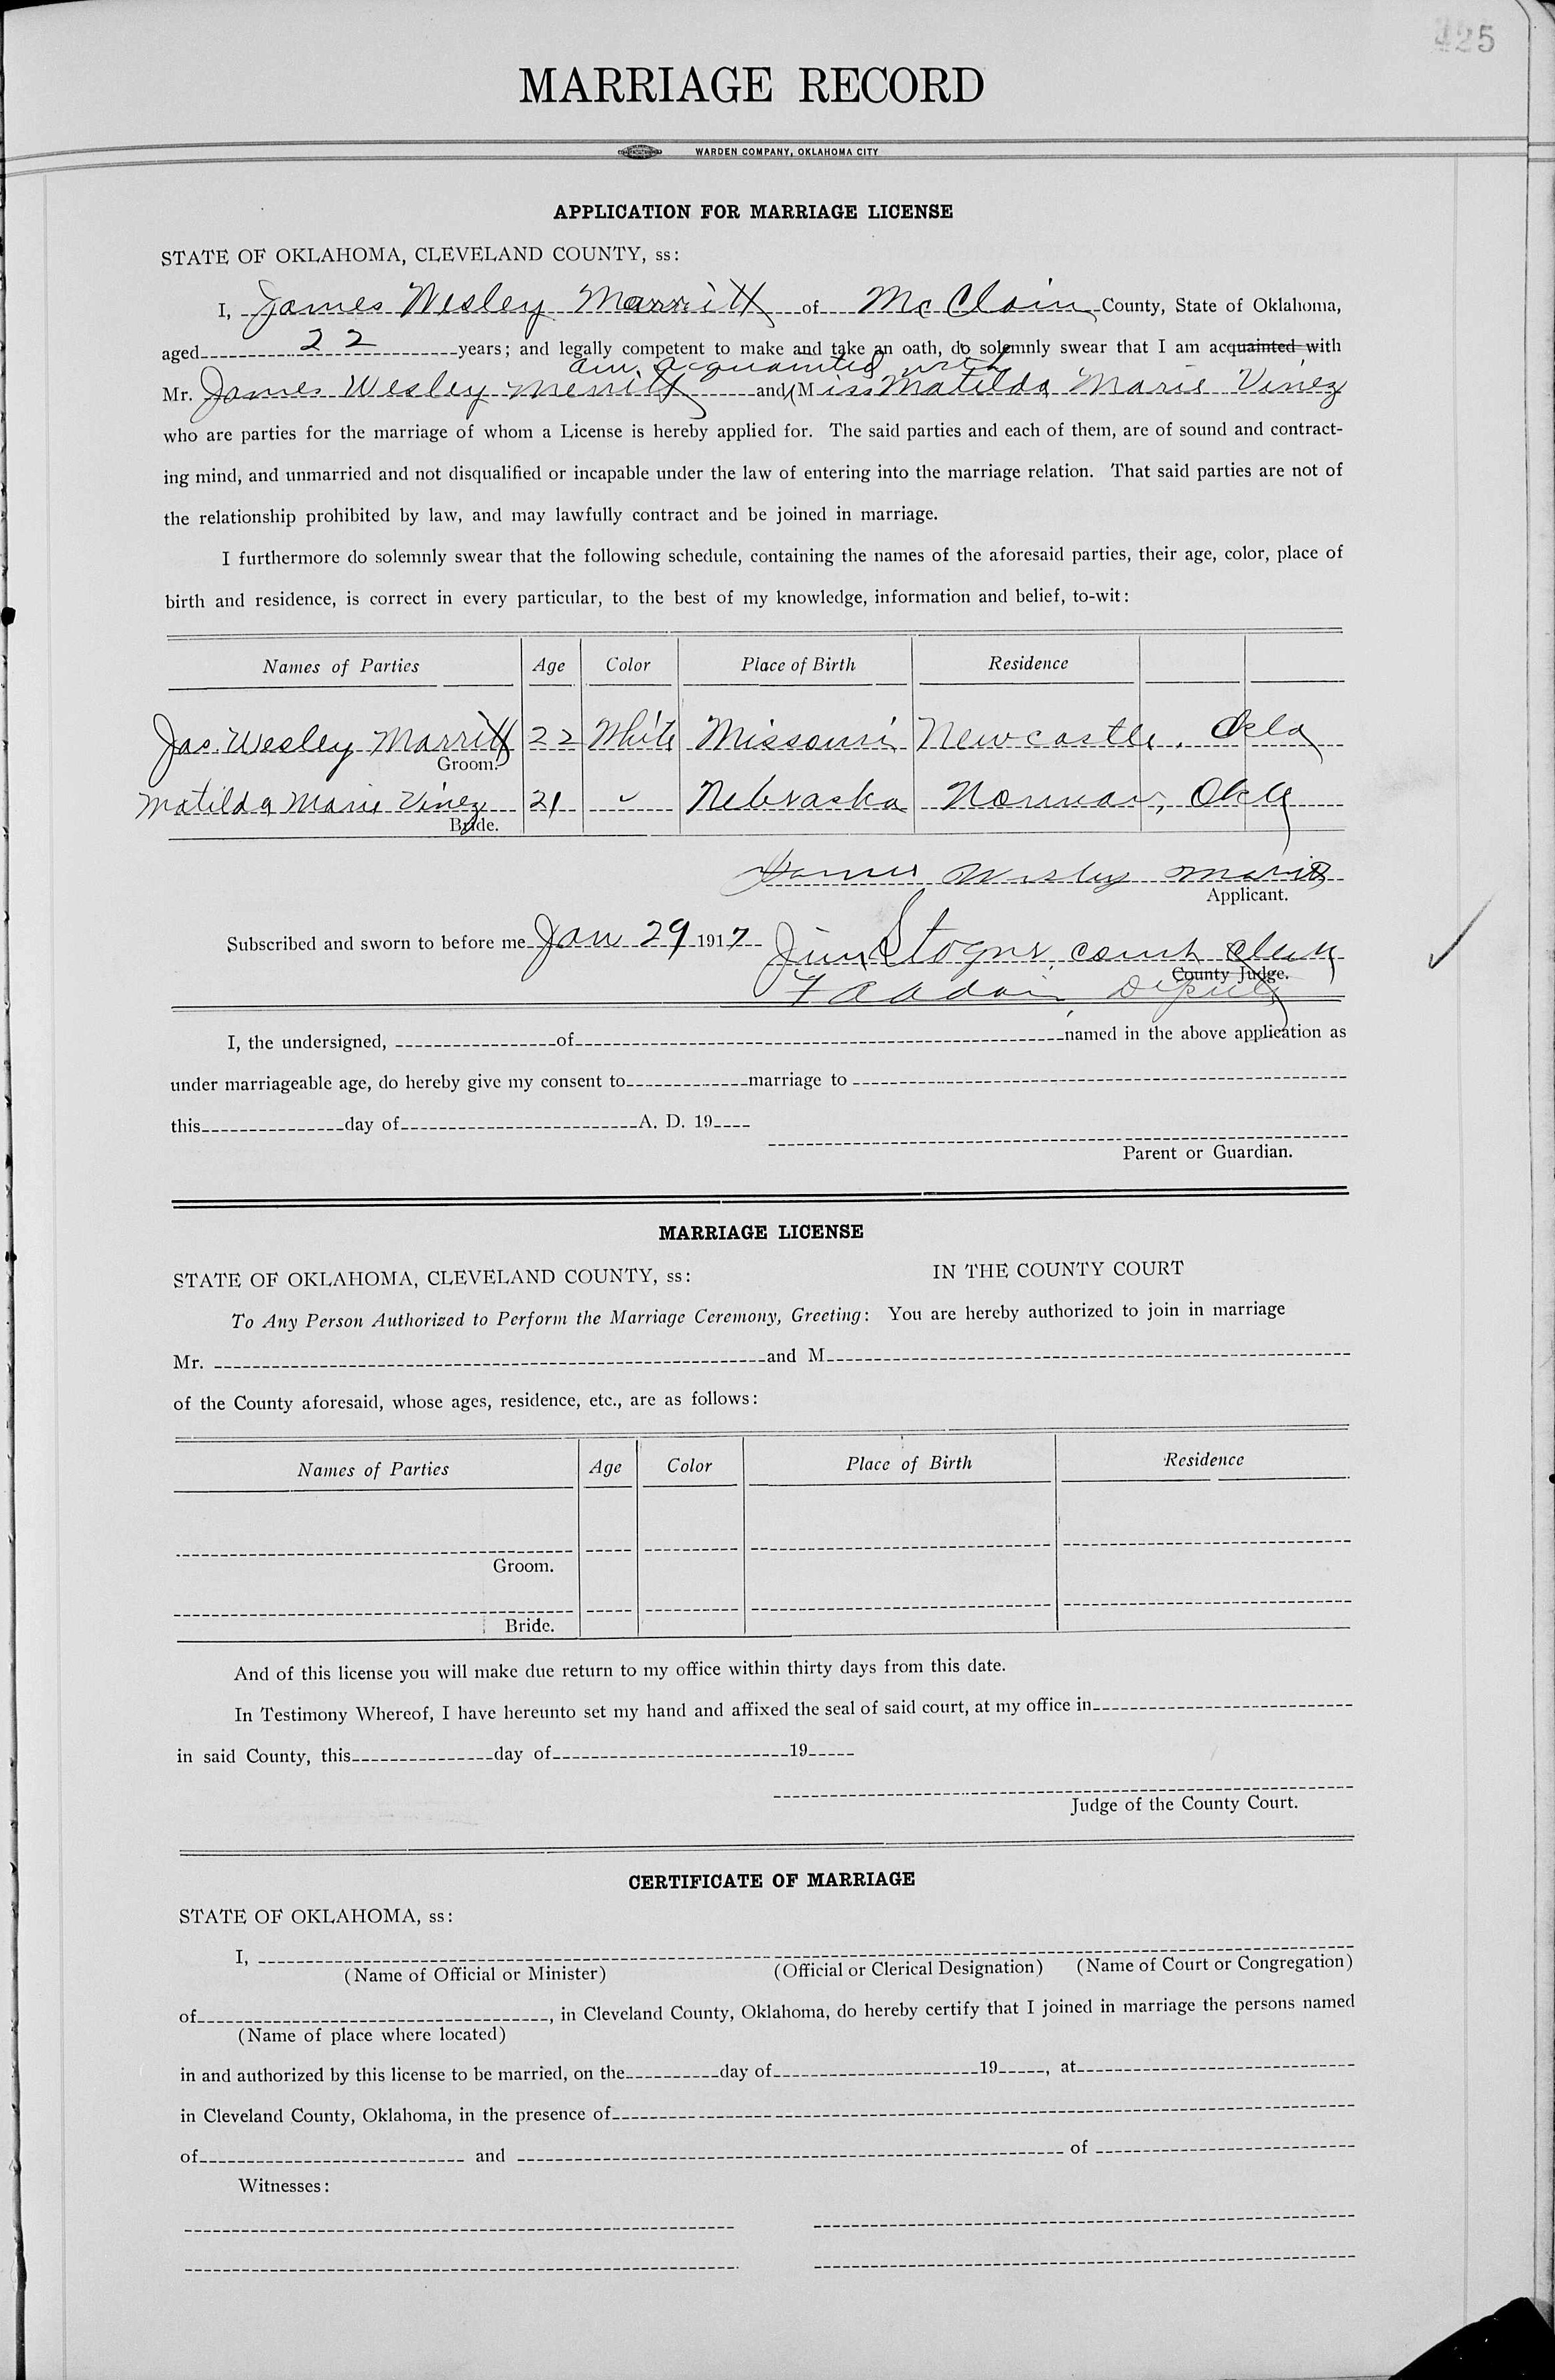 425
MARRIAGE RECORD
WARDEN COMPANY, OKLAHOMA CITY
APPLICATION FOR MARRIAGE LICENSE
STATE OF OKLAHOMA, CLEVELAND COUNTY, ss:
I, James Wesley Marritt of McClain County, State of Oklahoma,
aged 22 years; and legally competent to make and take an oath, do solemnly swear that I am acquainted with
am acquainted with
Mr. James Wesley Merritt and (Miss Matilda Marie Vinez
who are parties for the marriage of whom a License is hereby applied for. The said parties and each of them, are of sound and contract-
ing mind, and unmarried and not disqualified or incapable under the law of entering into the marriage relation. That said parties are not of
the relationship prohibited by law, and may lawfully contract and be joined in marriage.
I furthermore do solemnly swear that the following schedule, containing the names of the aforesaid parties, their age, color, place of
birth and residence, is correct in every particular, to the best of my knowledge, information and belief, to-wit:
Names of Parties Age Color Place of Birth Residence
Jas. Wesley Marritt 22 White Missouri Newcastle. Okla
Groom.
Matilda Marie Vinez 21 Nebraska Norman, Okla
Bride.
James Wesley
Applicant.
Subscribed and sworn to before me Jan 29 1917 Jim Stogner court clerk
County Judge.
Deputy
I, the undersigned, of named in the above application as
under marriageable age, do hereby give my consent to marriage to
this day of A. D. 19
Parent or Guardian.
MARRIAGE LICENSE
STATE OF OKLAHOMA, CLEVELAND COUNTY, ss: IN THE COUNTY COURT
To Any Person Authorized to Perform the Marriage Ceremony, Greeting: You are hereby authorized to join in marriage
Mr. and M
of the County aforesaid, whose ages, residence, etc., are as follows:
Names of Parties Age Color Place of Birth Residence
Groom.
Bride.
And of this license you will make due return to my office within thirty days from this date.
In Testimony Whereof, I have hereunto set my hand and affixed the seal of said court, at my office in
in said County, this day of 19
Judge of the County Court.
CERTIFICATE OF MARRIAGE
STATE OF OKLAHOMA, ss:
I,
(Name of Official or Minister) (Official or Clerical Designation) (Name of Court or Congregation)
of , in Cleveland County, Oklahoma, do hereby certify that I joined in marriage the persons named
(Name of place where located)
in and authorized by this license to be married, on the day of 19 , at
in Cleveland County, Oklahoma, in the presence of
of and of
Witnesses: